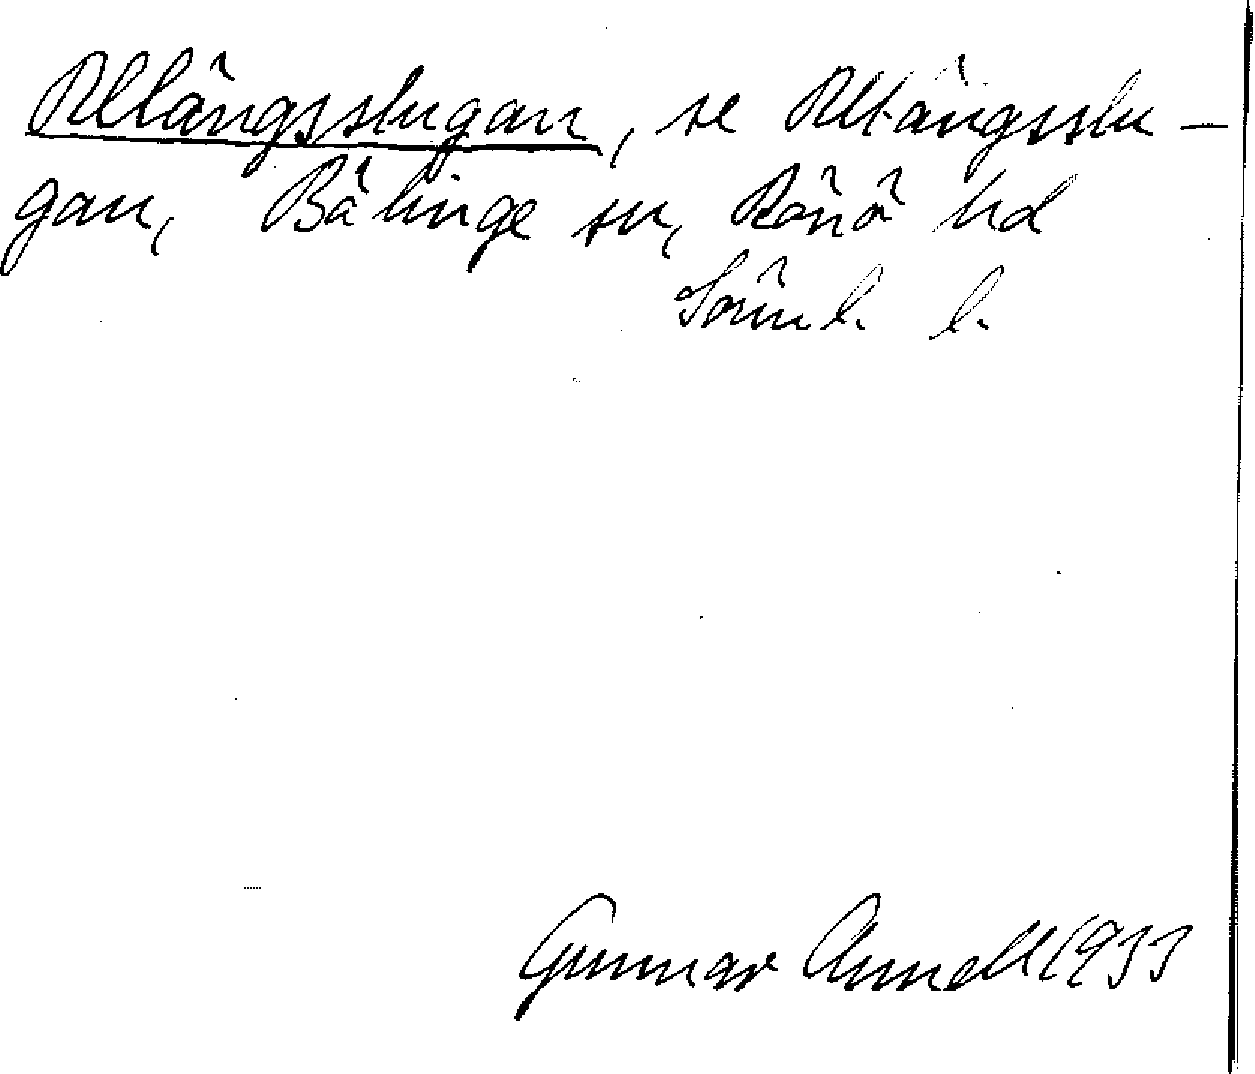 Ullängsstugan, se Ulltängsstu-
gan, Bälinge sn, Rönö hd
Sörml. l.
Gunnar Annell 1933